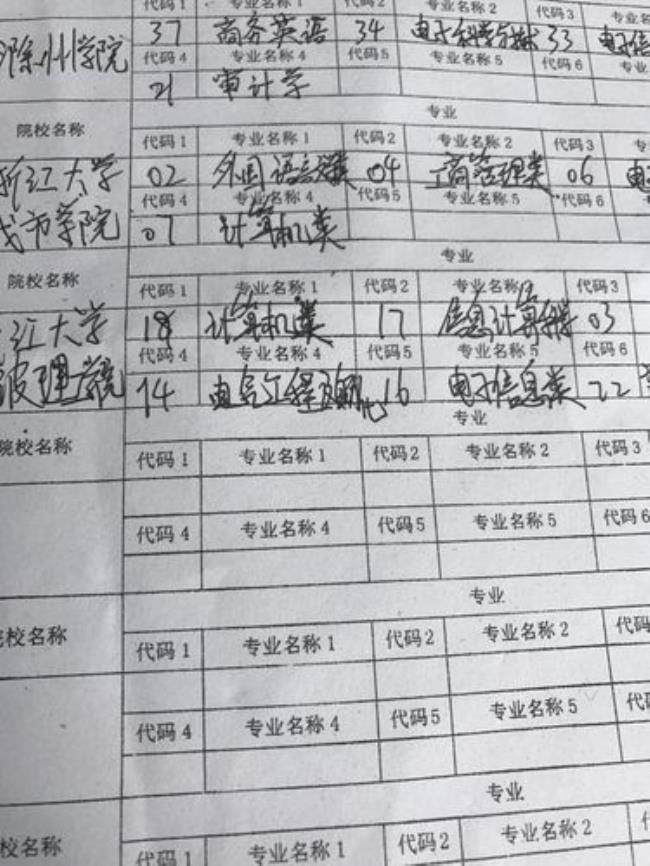 代码1 专业名称1 代码2 专业名称2 代码3 专业名
滁州学院 37 商务英语 34 电子科学与技术 33 电子信
代码4 专业名称4 代码5 专业名称5 代码6 专业
21 审计学
院校名称 专业
代码1 专业名称1 代码2 专业名称2 代码3 专
浙江大学 02 外国语言文学类 04 工商管理类 06 电
代码4 专业名称4 代码5 专业名称5 代码6
城市学院 07 计算机类
院校名称 专业
代码1 专业名称1 代码2 专业名称2 代码3
江大学 18 计算机类 17 信息计算科学 03
代码4 专业名称4 代码5 专业名称5 代码6
波理工学院 14 电气工程及 16 电子信息类 22
专业
院校名称 代码1 专业名称1 代码2 专业名称2 代码3
代码4 专业名称4 代码5 专业名称5 代码6
专业
院校名称 代码1 专业名称1 代码2 专业名称2 代码
代码4 专业名称4 代码5 专业名称5
专业
院校名称 代码1 专业名称1 代码2 专业名称2